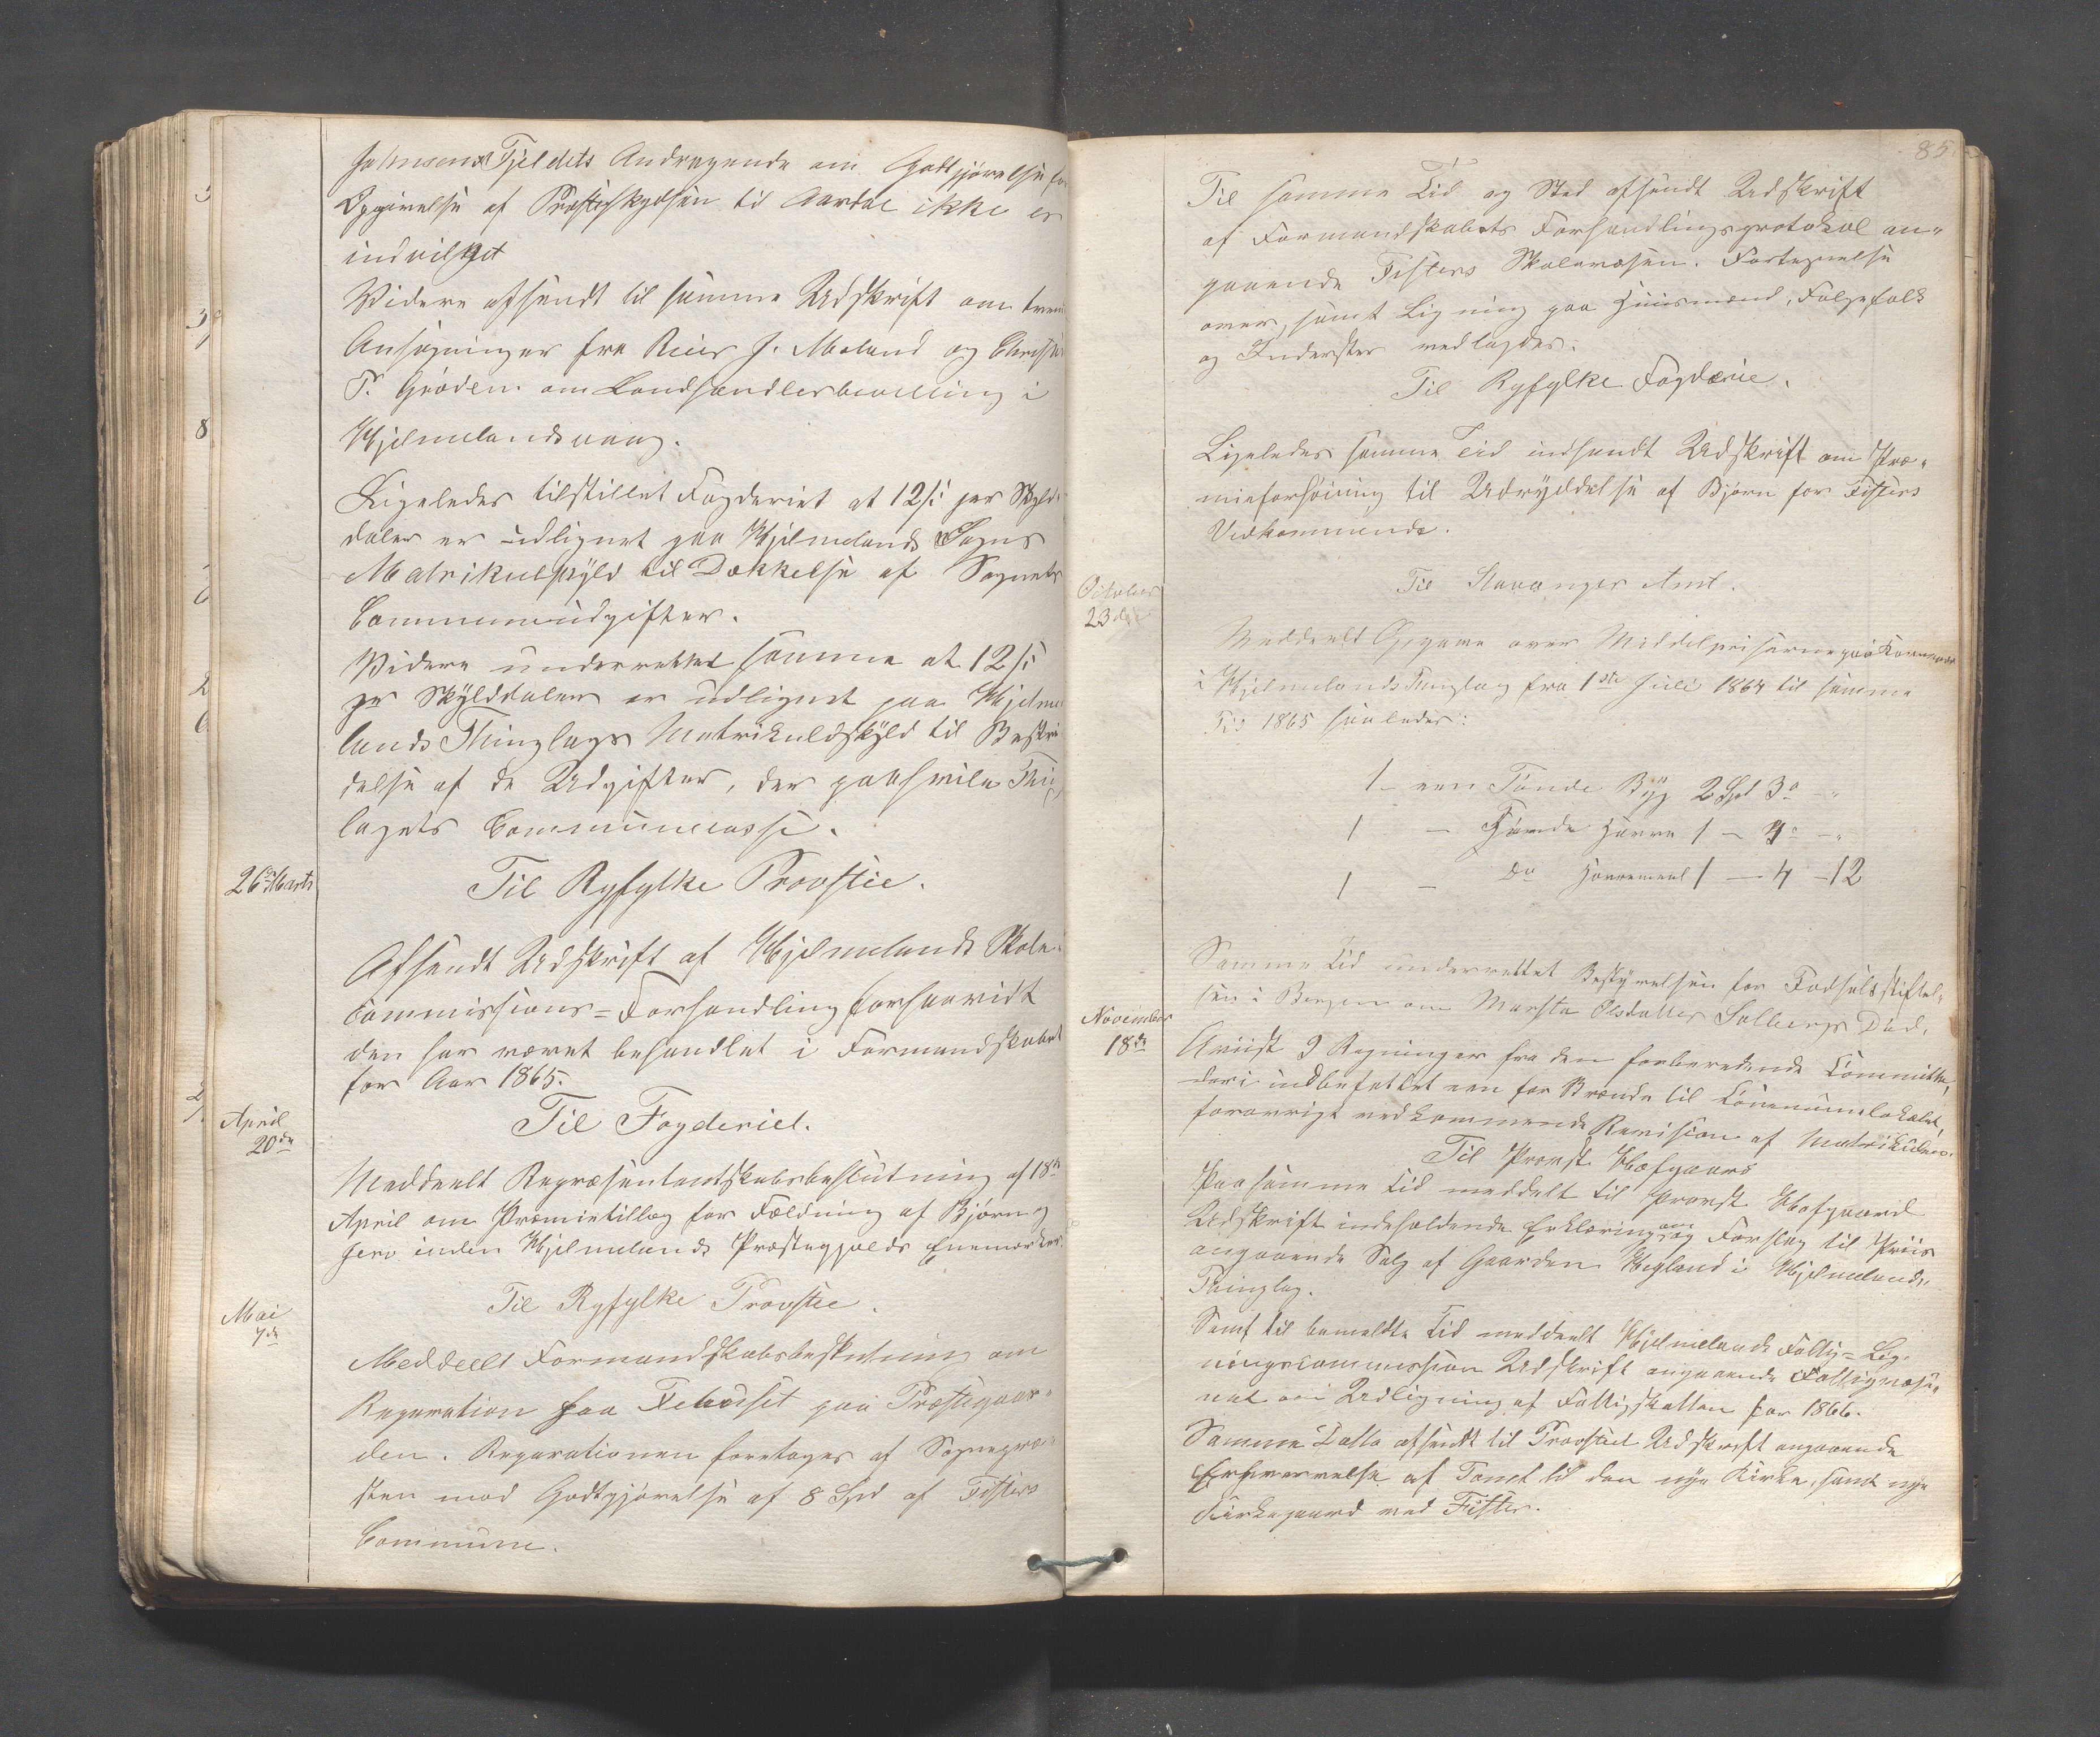 Johnsens Fjeldets Andragende om Godtgjørelse for
Opgivelse af Præsteskydsen til Aardal ikke er
indvilget
Videre afsendt til samme Udskrift om tvende
Ansøgninger fra J. Meland og
T. Grøden om Landhandlerbevilling i
Hjelmelandsvaag.
Ligeledes tilstillet Fogderiet at 12 ß per Skyld-
daler er udlignet paa Hjelmelands Sogns
Matrikulskyld til Dækkelse af Sognets
Communeudgifter.
Videre underrettet samme at 12 ß
pr Skylddaler er udlignet paa Hjelme
lands Thinglags Matrikulskyld til Bestri
delse af de Udgifter, der paahvile Thing
lagets Communecasse.
26de Marts
Til Ryfylke Provstie.
Afsendt Udskrift af Hjelmelands Skole-
commissions=Forhandling forsaavidt
den har været behandlet i Formandskabet
for Aar 1865.
April
20de
Til Fogderiet.
Meddeelt Repræsentantskabsbeslutning af 18de
April om Præmietillæg for Fældning af Bjørn og
Jerv inden Hjelmelands Præstegjælds Enemærker.
Mai
7de
Til Ryfylke Provstie.
Meddeelt Formandskabsbeslutning om
Reparation paa Fehuset paa Præstegaar-
den. Reparationen foretages af Sognepræ-
sten mod Godtgjørelse af 8 Spd af Fisters
Commune.
85
Til samme Tid og Sted afsendt Udskrift
af Formandskabets Forhandlingsprotokol an-
gaaende Fisters Skolevæsen. Fortegnelse
over, samt Ligning paa Huusmænd, Følgefolk
og Inderster vedlagdes.
Til Ryfylke Fogderie.
Ligeledes samme Tid indsendt Udskrift om Præ-
mieforhøining til Udryddelse af Bjørn for Fisters
Vedkommende.
October
23de
Til Stavanger Amt.
Meddeelt Opgave over Middelpriserne paa Kornvarer
i Hjelmelands Thinglag fra 1ste Juli 1864 til samme
Tid 1865 saaledes:
1 – een Tønde Byg 2 Spd 3 – "
1 – Tønde Havre 1 – 4 – "
1 – do Havremeel 1 – 4 – 12
Samme Tid underrettet Bestyrelsen for Fødselsstiftel-
sen i Bergen om Martha Olsdatter Solbergs Død.
November
18de
Anviist 9 Regninger fra den forberedende Committe,
deri indbefattet een for Brænde til Communelokalet,
forøvrigt vedkommende Revision af Matrikulen.
Til Provst Hofgaard
Paa samme Tid meddelt til Provst Hofgaard
Udskrift indeholdende Erklæring om og Forslag til Priis
angaaende Salg af Gaarden Hegland i Hjelmelands
Thinglag.
Samt til bemeldte Tid meddeelt Hjelmelands Fattig=Lig-
ningscommission Udskrift angaaende Fattigvæse-
net om Udligning af Fattigskatten for 1866.
Samme Datto afsendt til Provstiet Udskrift angaaende
Erhvervelse af Tomt til den nye Kirke, samt nye
Kirkegaard ved Fister.